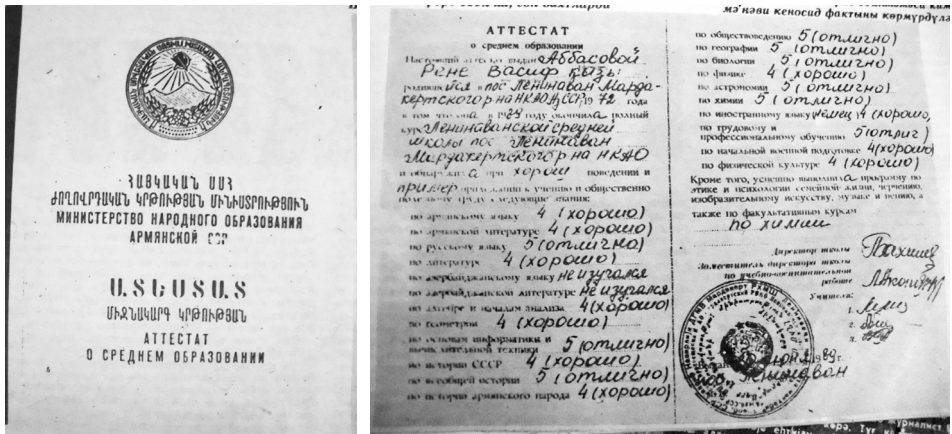 ՀԱՅԿԱԿԱՆ ՍՍՀ
ԺՈՂՈՎՐԴԱԿԱՆ ԿՐԹՈՒԹՅԱՆ ՄԻՆԻՍՏՐՈՒԹՅՈՒՆ
МИНИСТЕРСТВО НАРОДНОГО ОБРАЗОВАНИЯ
АРМЯНСКОЙ ССР
ԱՏԵՍՏԱՏ
ՄԻՋՆԱԿԱՐԳ ԿՐԹՈՒԹՅԱՆ
АТТЕСТАТ
О СРЕДНЕМ ОБРАЗОВАНИИ
АТТЕСТАТ
о среднем образовании
Настоящий аттестат выдан Аббасовой
Рене Васиф кызы
родившейся в пос Ленинаван Марда-
кертского р на НКАО 1972 года
в том что она в 1989 году окончила полный
курс Ленинаванской средней
школы пос Ленинаван
Мардакертского р на НКАО
и обнаружила при хорош поведении и
пример прилежании к учению и общественно
полезному труду следующие знания:
по армянскому языку 4 (хорошо)
по армянской литературе 4 (хорошо)
по русскому языку 5 (отлично)
по литературе 4 (хорошо)
по азербайджанскому языку не изучался
по азербайджанской литературе не изучался
по алгебре и началам анализа 4 (хорошо)
по геометрии 4 (хорошо)
по основам информатики и
вычислительной техники 5 (отлично)
по истории СССР 4 (хорошо)
по всеобщей истории 5 (отлично)
по истории армянского народа 4 (хорошо)
мә'нәви кеносид фактыны көрмүрдүлә
по обществоведению 5 (отлично)
по географии 5 (отлично)
по биологии 5 (отлично)
по физике 4 (хорошо)
по астрономии 5 (отлично)
по химии 5 (отлично)
по иностранному языку немец 4 (хорошо)
по трудовому и
профессиональному обучению 5 (отлич)
по начальной военной подготовке 4 (хорошо)
по физической культуре 4 (хорошо)
Кроме того, успешно выполнила программу по
этике и психологии семейной жизни, черчению,
изобразительному искусству, музыке и пению, а
также по факультативным курсам
по химии
Директор школы
Заместитель директора школы
по учебно-воспитательной
работе
Учителя:
1.
2.
3.
1989 г.
Ленинаван